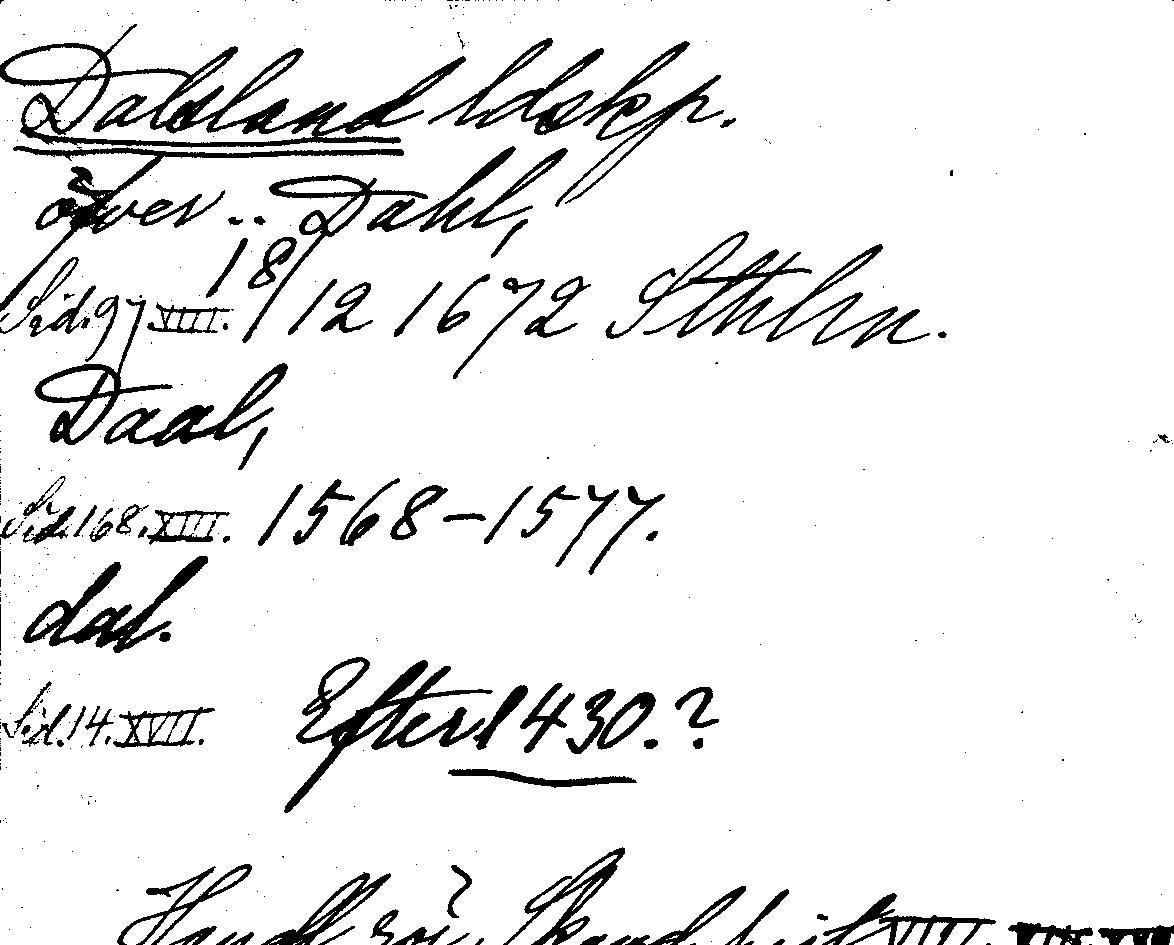 Dalsland ldskp.
öfver .. Dahl,
Sid. 97. VIII. 18/12 1672 Sthlm.
Daal,
Sid. 168. XIII. 1568-1577.
dal.
Sid. 14. XVII. Efter 1430.?
Handl. rör. Skand. hist. VIII. XIII. XVII.